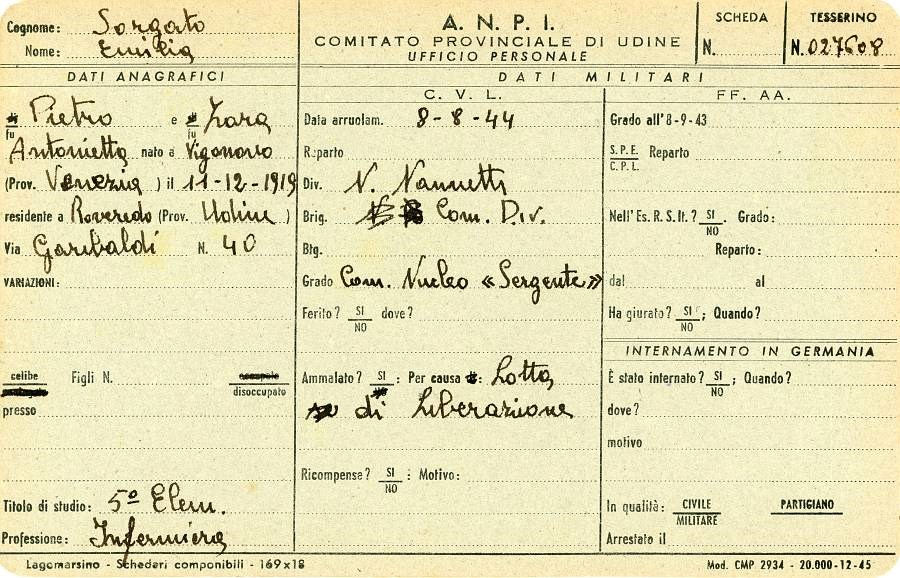 Cognome: Sorgato
Nome: Emilia
A. N. P. I.
COMITATO PROVINCIALE DI UDINE
UFFICIO PERSONALE
SCHEDA
N.
TESSERINO
N. 027608
DATI ANAGRAFICI
fu Pietro e fu Zara
Antonietta nato a Vigonovo
(Prov. Venezia ) il 11-12-1919
residente a Roveredo (Prov. Udine )
Via Garibaldi N. 40
VARIAZIONI:
celibe Figli N.
disoccupato
presso
Titolo di studio: 5º Elem.
Professione: Infermiera
DATI MILITARI
C. V. L.
Data arruolam. 8-8-44
Reparto
Div. N. Nannetti
Brig. Com. Div.
Btg.
Grado Com. Nucleo «Sergente»
Ferito? SI dove?
NO
Ammalato? SI : Per causa : Lotta
di Liberazione
Ricompense? SI : Motivo:
NO
FF. AA.
Grado all'8-9-43
S. P. E. Reparto
C. P. L.
Nell'Es. R. S. It.? SI . Grado:
NO
Reparto:
dal al
Ha giurato? SI ; Quando?
NO
INTERNAMENTO IN GERMANIA
È stato internato? SI ; Quando?
NO
dove?
motivo
In qualità: CIVILE PARTIGIANO
MILITARE
Arrestato il
Lagomarsino - Schedari componibili - 169x18
Mod. CMP 2934 - 20.000-12-45